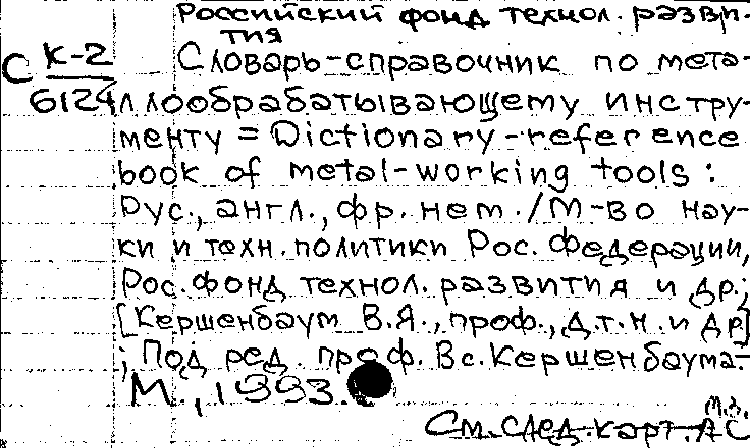 Российский фонд технол. разви-
тия
С К-2
6124
Словарь-справочник по мета-
ллообрабатывающему инстру-
менту = Dictionary-reference
book of metal-working tools:
Рус., англ., фр. нем. / М-во нау-
ки и техн. политики Рос. Федерации,
Рос. фонд технол. развития и др.;
[Кершенбаум В.Я., проф., д.т.н. и др]
; Под ред. проф. Вс. Кершенбаума.-
М., 1993.
См. след карт.